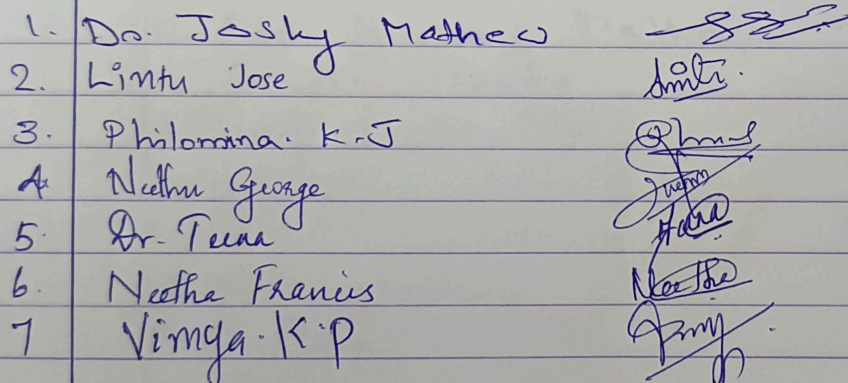 1. Dr. Josky Mathew
2. Lintu Jose
3. Philomina. K.J
4. Neethu George
5. Dr. Teena
6. Neetha Francis Neetha
7 Vimya. K.P